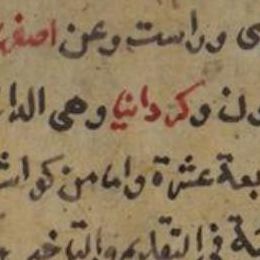 وراست وعن اصفر
ون وكردانيا وهى الدا
بعة عشرة واما من كواكب
فى التقديم والتاخير